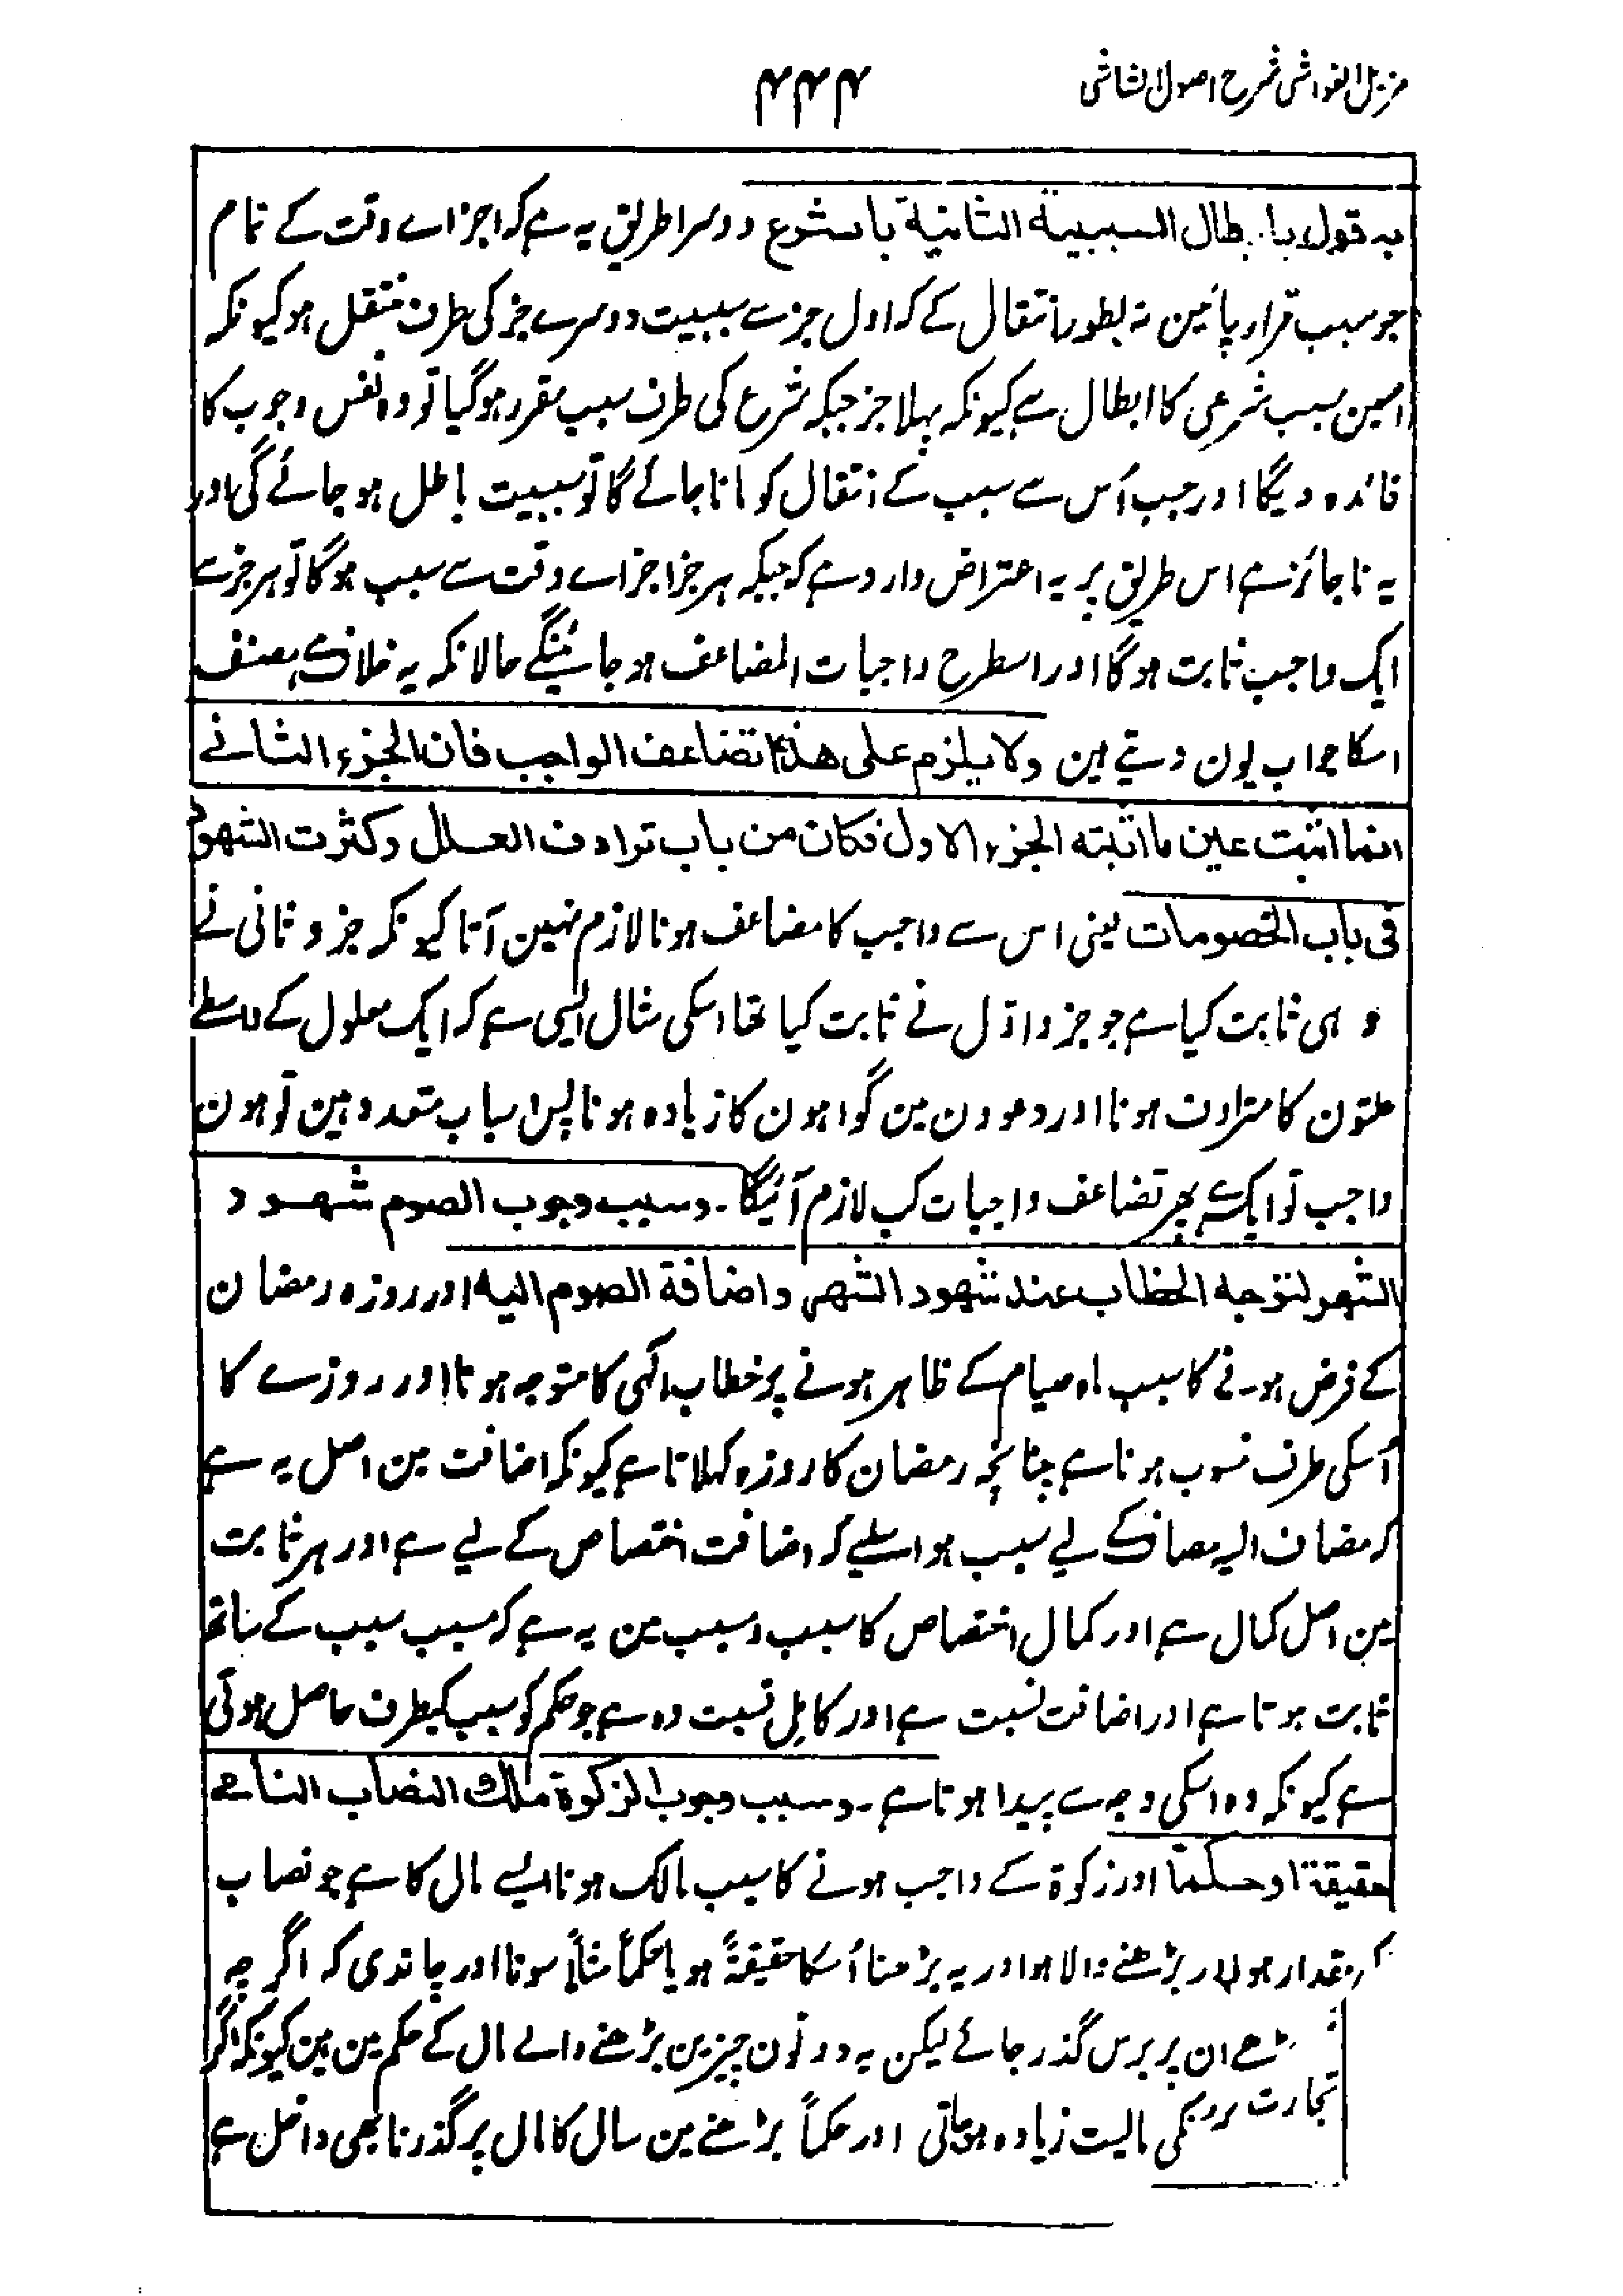 مزیل الغواشی شرح اصول الشاشی
۴۴۴
به قول بابطال السببية الثانية بالشرع دوسرا طریق یہ ہے کہ اجزاے وقت کے تمام
جو سبب قرار پائین نہ بطور انتقال کے کہ اول جز سے سببیت دوسرے جز کی طرف منتقل ہو کیونکہ
اسمین سبب شرعی کا ابطال ہے کیونکہ پہلا جز جبکہ شرع کی طرف سبب مقرر ہوگیا تو وہ نفس وجوب کا
فائدہ دیگا اور جب اُس سے سبب کے انتقال کو مانا جائے گا تو سببیت باطل ہو جائے گی اور
یہ ناجائز ہے اس طریق پر یہ اعتراض وارد ہے کہ جبکہ ہر جز اجزاے وقت سے سبب ہوگا تو ہر جز سے
ایک واجب ثابت ہوگا اور اسطرح واجبات المضاعف ہو جائینگے حالانکہ یہ خلاف ہے مصنف
اسکا جواب یون دیتے ہین ولا يلزم على هذا تضاعف الواجب فان الجزء الثانے
انما اثبت عين ما اثبته الجزء الاول فكان من باب ترادف العلل وكثرت الشهود
فى باب الخصومات یعنی اس سے واجب کا مضاعف ہونا لازم نہین آتا کیونکہ جزو ثانی نے
وہی ثابت کیا ہے جو جزو اوّل نے ثابت کیا تھا اسکی مثال ایسی ہے کہ ایک معلول کے واسطے
علتون کا مترادف ہونا اور دعوون مین گواہون کا زیادہ ہونا پس اسباب متعدد ہین تو ہون
واجب تو ایک ہے پھر تضاعف واجبات کب لازم آئیگا۔ وسبب وجوب الصوم شهود
الشهر لتوجه الخطاب عند شهود الشهر واضافة الصوم اليه اور روزہ رمضان
کے فرض ہونے کا سبب ماہ صیام کے ظاہر ہونے پر خطاب الٰہی کا متوجہ ہونا اور روزے کا
اُسکی طرف منسوب ہونا ہے چنانچہ رمضان کا روزہ کہلاتا ہے کیونکہ اضافت مین اصل یہ ہے
کہ مضاف الیہ مضاف کے لیے سبب ہو اسلیے کہ اضافت اختصاص کے لیے ہے اور ہر ثابت
مین اصل کمال ہے اور کمال اختصاص کا سبب و مسبب مین یہ ہے کہ مسبب سبب کے ساتھ
ثابت ہوتا ہے اور اضافت نسبت ہے اور کامل نسبت وہ ہے جو حکم کو سبب کیطرف حاصل ہوتی
ہے کیونکہ وہ اسکی وجہ سے پیدا ہوتا ہے۔ وسبب وجوب الزكوة ملك النصاب النامے
حقيقة او حكماً اور زکوٰة کے واجب ہونے کا سبب مالک ہونا ایسے مال کا ہے جو نصاب
کی مقدار ہو اور بڑھنے والا ہو اور یہ بڑھنا اُسکا حقیقةً ہو یا حکماً مثلاً سونا اور چاندی کہ اگر چہ
بڑھے ان پر برس گذر جائے لیکن یہ دونون چیزین بڑھنے والے مال کے حکم مین ہین کیونکہ اگر
تجارت مالیت زیادہ ہو جاتی اور حکماً بڑھنے مین سال کا مال پر گذرنا بھی داخل ہے